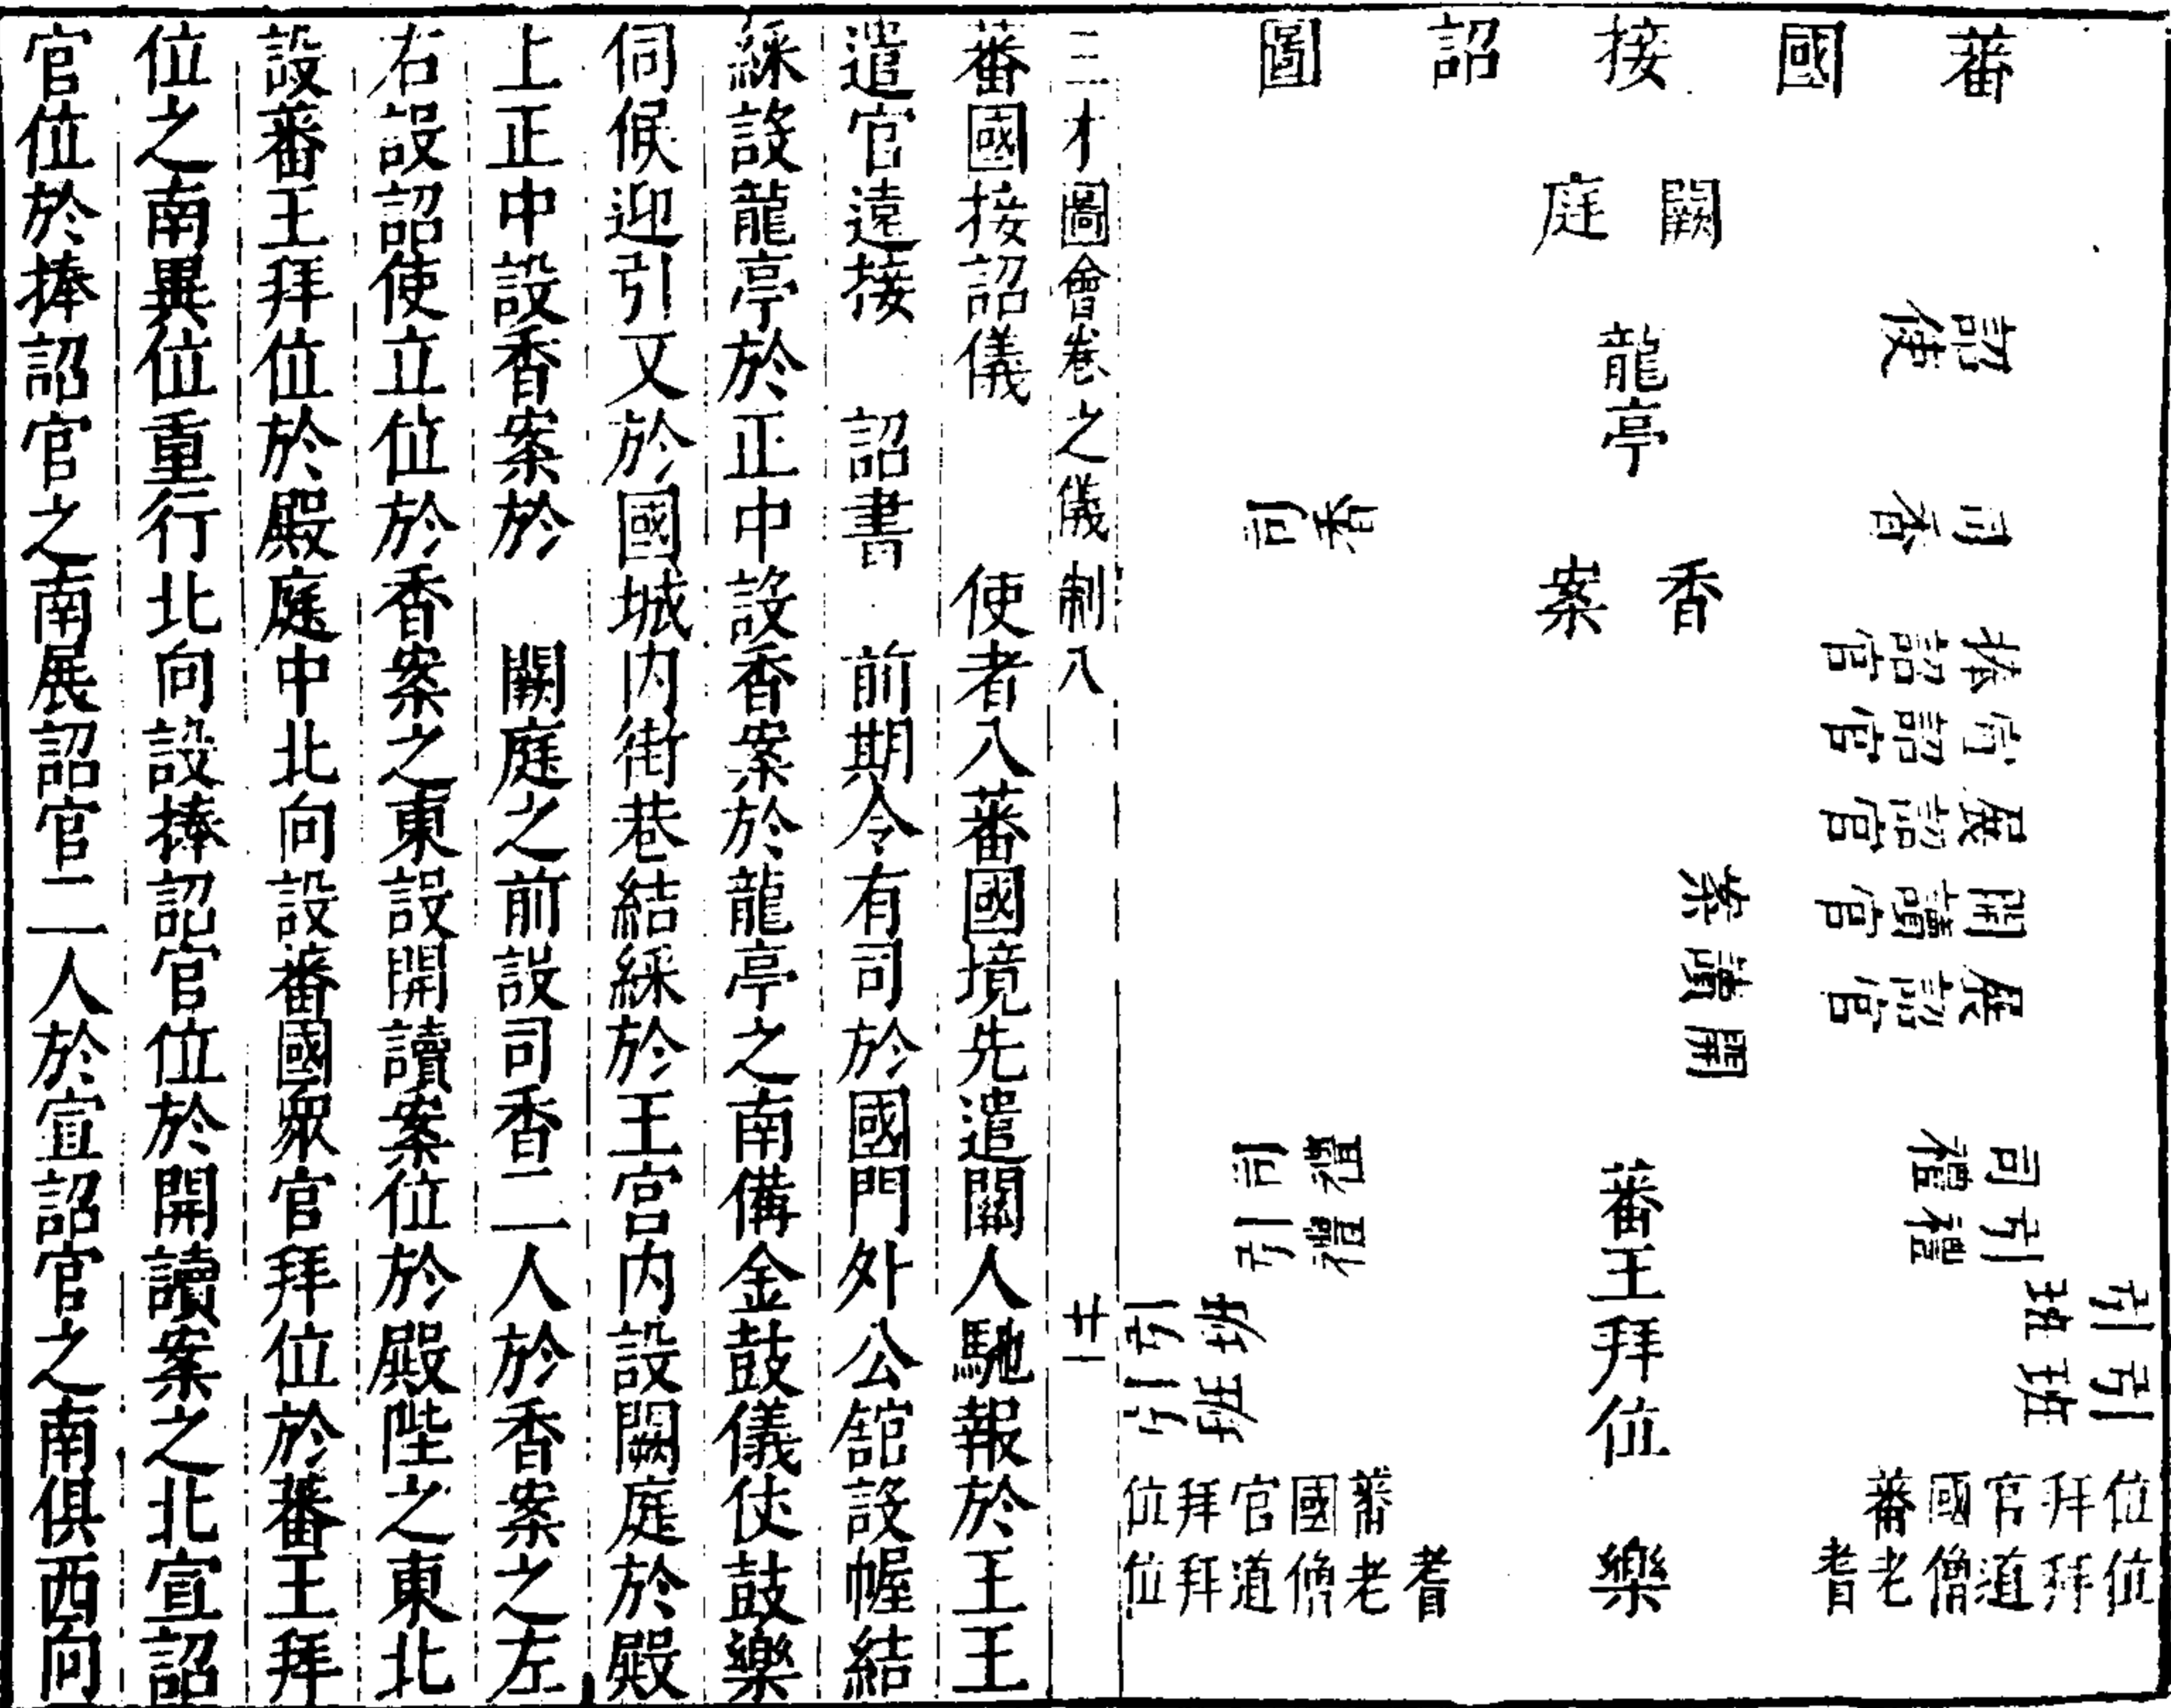 蕃國接詔圖
闕庭
龍亭
香案
詔使
司香
捧詔官
宣詔官
展詔官
開讀官
展詔官
開讀案
司禮
引禮
引班
引班
蕃王拜位
樂
蕃國官拜位
耆老僧道拜位
蕃國官拜位
耆老僧道拜位
三才圖會卷之儀制八 廿一
蕃國接詔儀 使者入蕃國境先遣關人馳報於王王
遣官遠接 詔書 前期令有司於國門外公舘設幄結
綵設龍亭於正中設香案於龍亭之南備金鼓儀仗鼓樂
伺候迎引又於國城内街巷結綵於王宫内設闕庭於殿
上正中設香案於 闕庭之前設司香二人於香案之左
右設詔使立位於香案之東設開讀案位於殿陛之東北
設蕃王拜位於殿庭中北向設蕃國衆官拜位於蕃王拜
位之南異位重行北向設捧詔官位於開讀案之北宣詔
官位於捧詔官之南展詔官二人於宣詔官之南俱西向